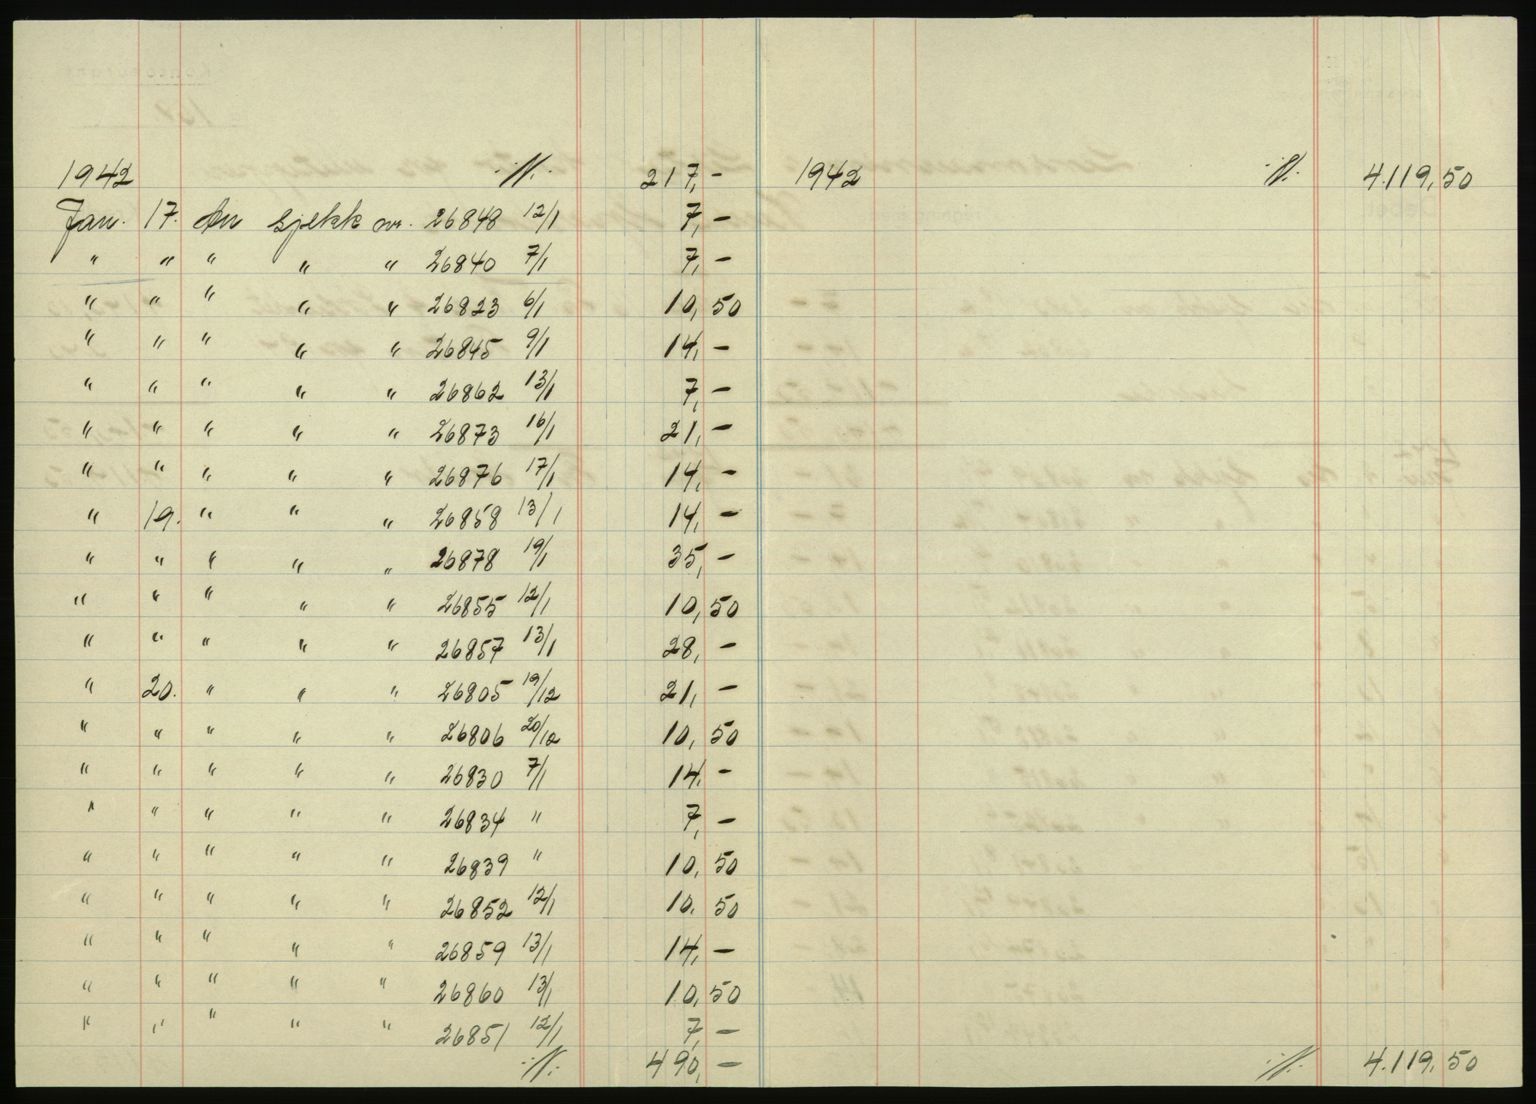 1942 ·/· 217,-
Jan. 17. An sjekk nr. 26848 12/1 7,-
" " " " " 26840 7/1 7,-
" " " " " 26823 6/1 10,50
" " " " " 26845 9/1 14,-
" " " " " 26862 13/1 7,-
" " " " " 26873 16/1 21,-
" " " " " 26876 17/1 14,-
" 19. " " " 26858 13/1 14,-
" " " " " 26878 19/1 35,-
" " " " " 26855 12/1 10,50
" " " " " 26857 13/1 28,-
" 20. " " " 26805 19/12 21,-
" " " " " 26806 20/12 10,50
" " " " " 26830 7/1 14,-
" " " " " 26834 " 7,-
" " " " " 26839 " 10,50
" " " " " 26852 12/1 10.50
" " " " " 26859 13/1 14,-
" " " " " 26860 13/1 10,50
" " " " " 26851 12/1 7,-
·/· 490,-
1942 ·/· 4.119,50
·/· 4.119,50